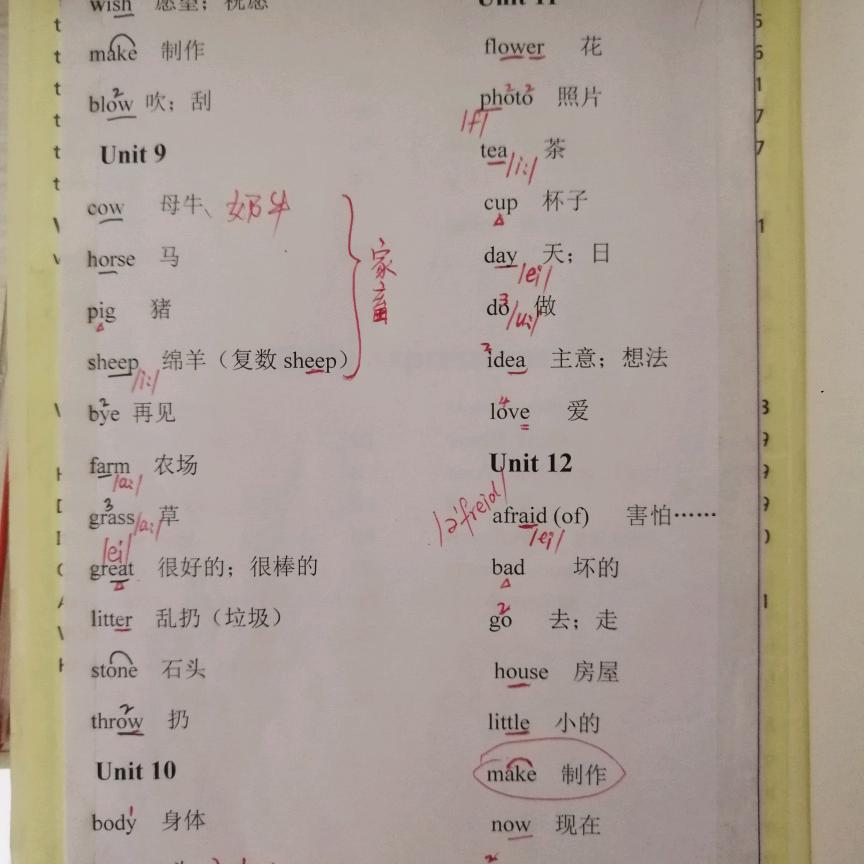 wish 愿望；祝愿
make 制作
2
blow 吹；刮
Unit 9
cow 母牛、奶牛
horse 马
pig 猪
sheep 绵羊（复数 sheep） 家畜
/i:/
2
bye 再见
farm 农场
/a:/
3
grass /a:/ 草
/ei/
great 很好的；很棒的
litter 乱扔（垃圾）
stone 石头
2
throw 扔
Unit 10
1
body 身体
Unit 11
flower 花
2 2
photo 照片
/f/
tea 茶
/i:/
cup 杯子
day 天；日
/ei/
3
do /u:/ 做
2
idea 主意；想法
4
love 爱
Unit 12
/ə'freid/
afraid (of) 害怕……
/ei/
bad 坏的
2
go 去；走
house 房屋
little 小的
make 制作
now 现在
2